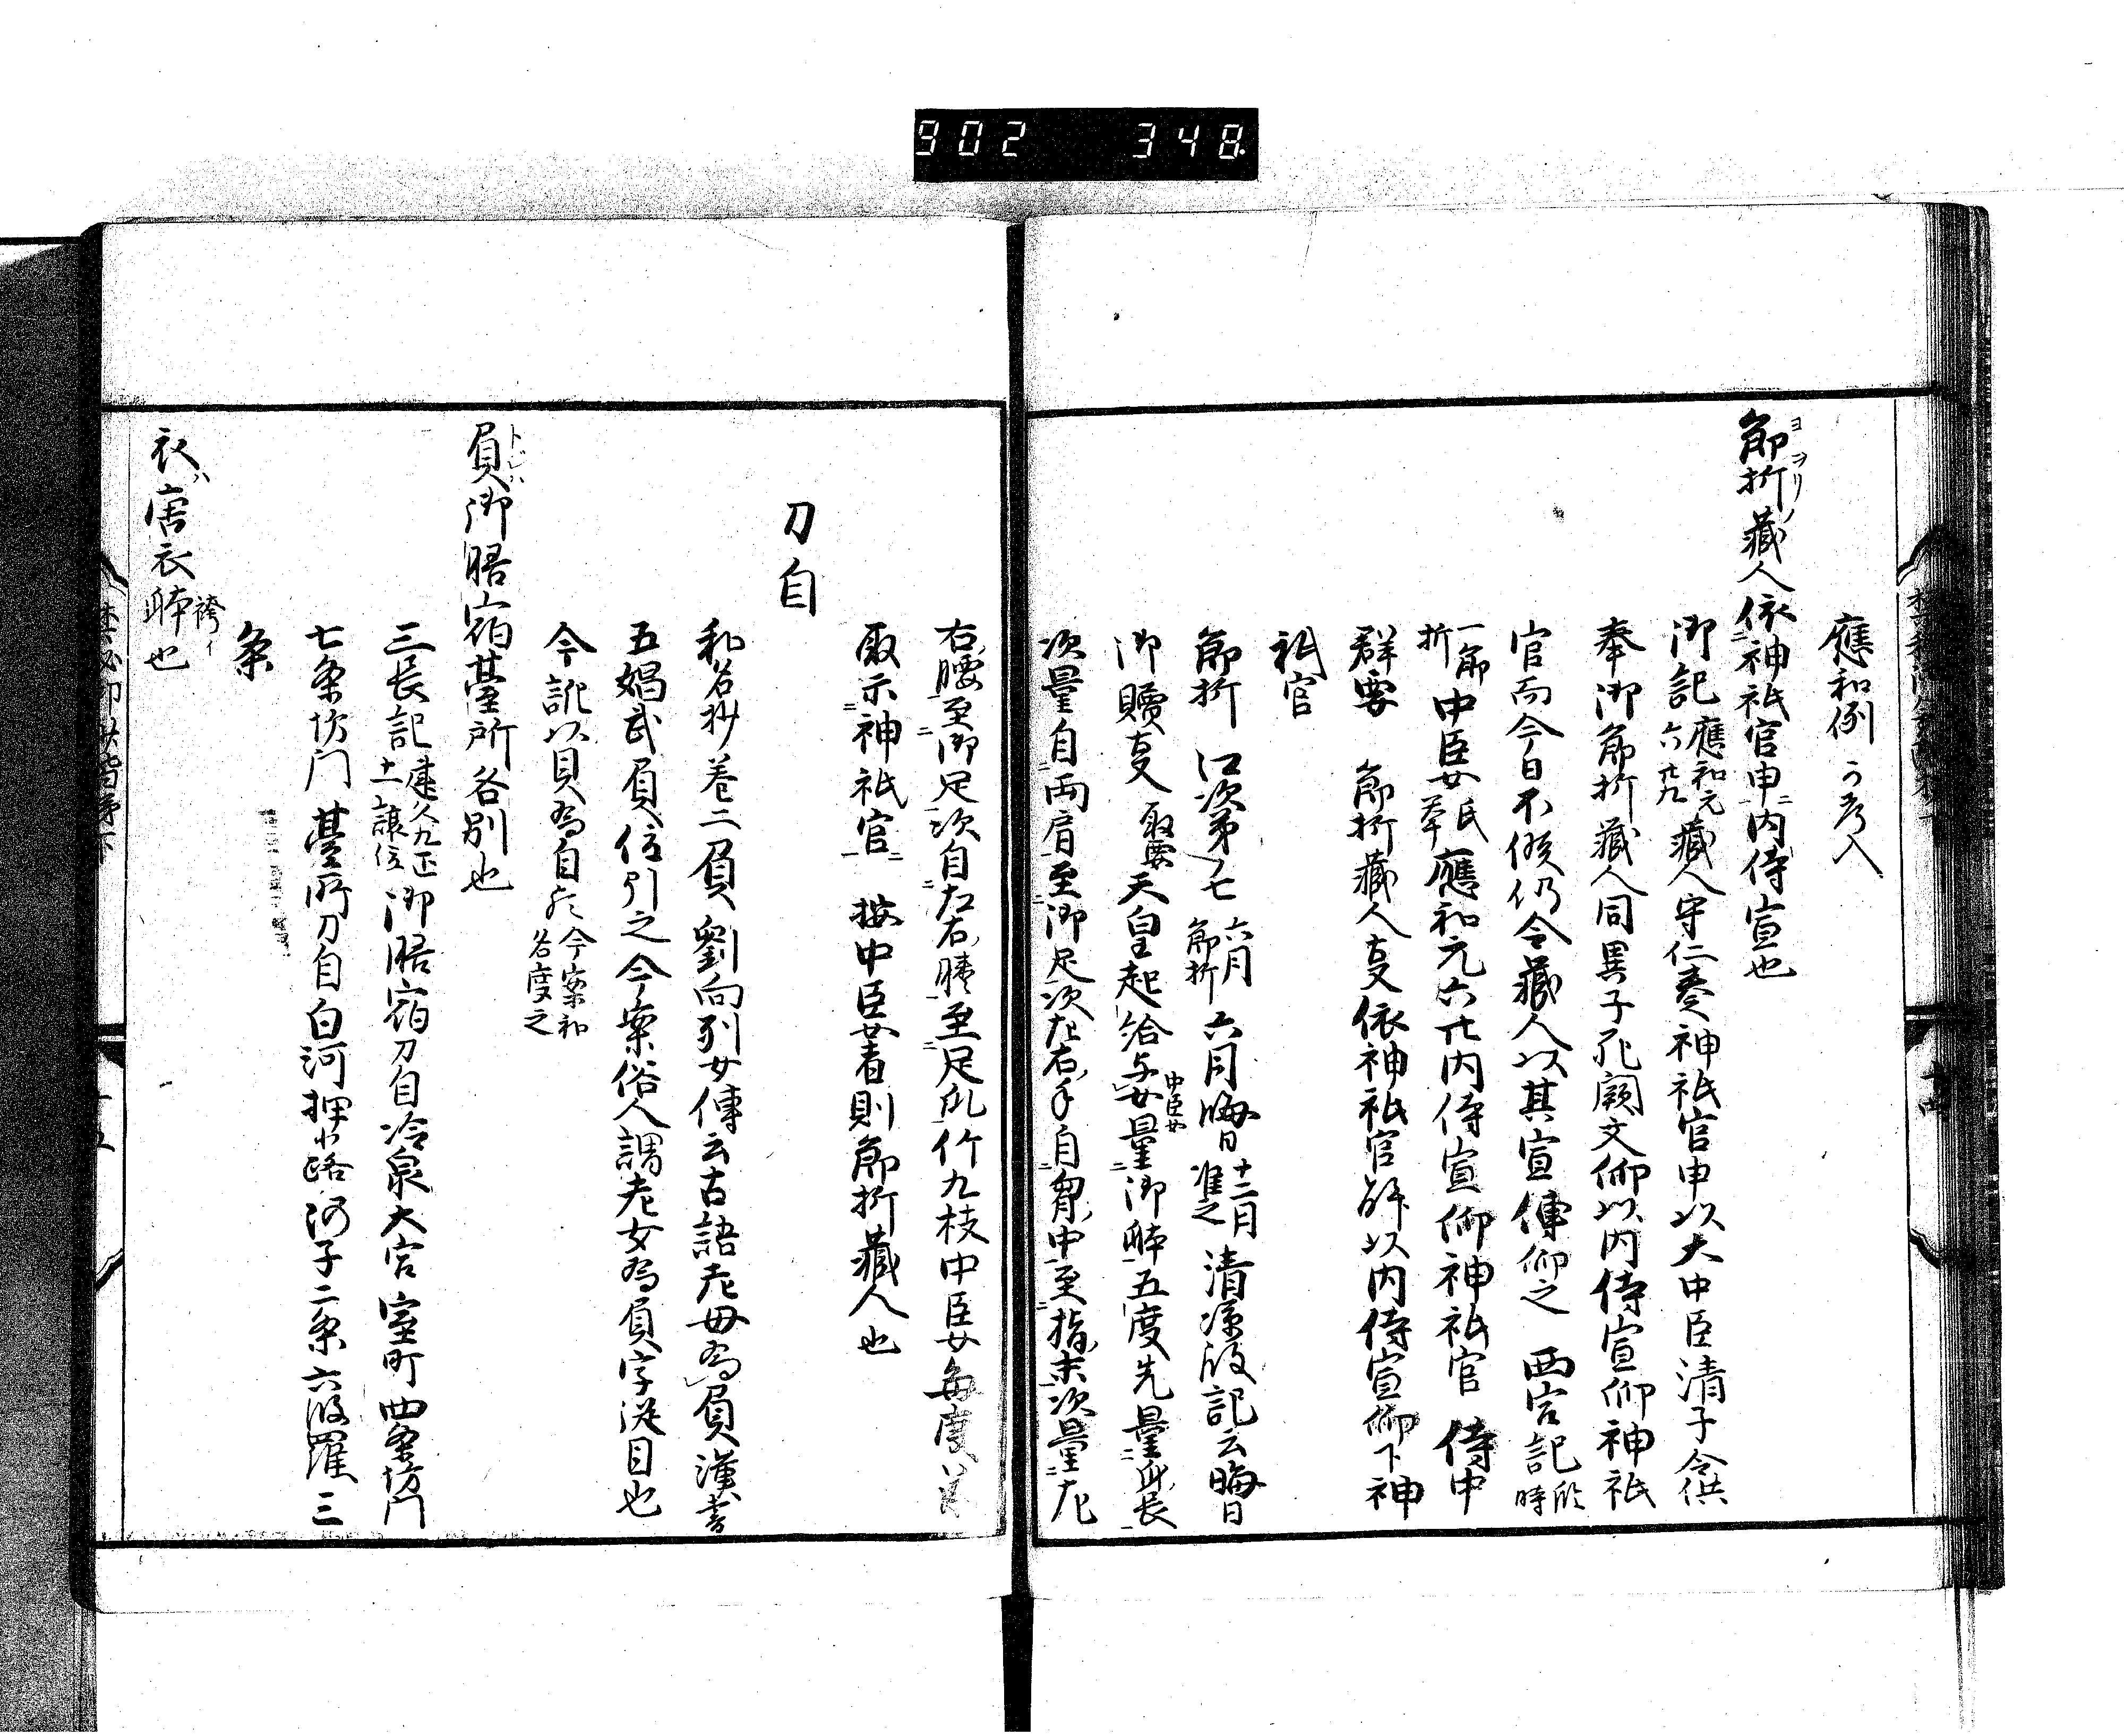 902 348
應和例 可考入
節折藏人依神祇官申内侍宣也
ヨヲリノ
御記 應和元六廿九 藏人守仁奏神祇官申以大中臣清子令供
奉御節折藏人同異子死闕文仰以内侍宣仰神祇
官而今日不候仍令藏人以其宣傳仰之 西宮記 臨時
一節折 中臣女 氏擧 應和元六廿内侍宣仰神祇官 侍中
群要 節折藏人事依神祇官解以内侍宣仰下神
祇官
節折 江次第七 六月節折 六月晦日 十二月准之 清凉殿記云晦日
御贖事 取要 天皇起給与女 中臣女 量御体五度先量身長
次量自両肩至御足次左右手自胸中至指末次量左
右腰至御足次自左右膝至足凡竹九枝中臣女毎度
取示神祇官 按中臣女者則節折藏人也
刀自
和名抄卷二負 劉向列女傳云古語老母為負漢書
五娼武負位引之今案俗人謂老女為負字従目也
今訛以貝為自 今案和名度之
負御膳宿臺所各別也
トジハ
三長記 建久九正十一讓位 御膳宿刀自冷泉大宮室町四条坊門
七条坊門 臺所刀自白河押小路河子二条六波羅三
条
衣ハ唐衣 袴イ 躰也
十四
十五